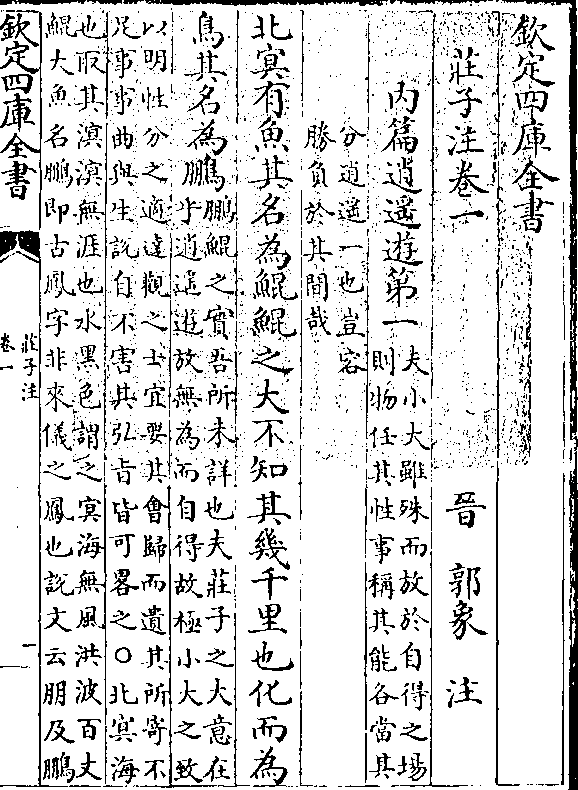 欽定四庫全書
莊子注卷一
晉 郭象 注
内篇逍遥遊第一
夫小大雖殊而放於自得之場
則物任其性事稱其能各當其
分逍遥一也豈容
勝負於其間哉
北㝠有魚其名為鯤鯤之大不知其幾千里也化而為
鳥其名為鵬
鵬鯤之實吾所未詳也夫莊子之大意在
乎逍遥遊放無為而自得故極小大之致
以明性分之適達觀之士宜要其會歸而遺其所寄不
足事事曲與生說自不害其弘旨皆可畧之○北㝠海
也取其溟溟無涯也水黑色謂之㝠海無風洪波百丈
鯤大魚名鵬即古鳳字非來儀之鳳也説文云朋及鵬
欽定四庫全書
莊子注
卷一
一